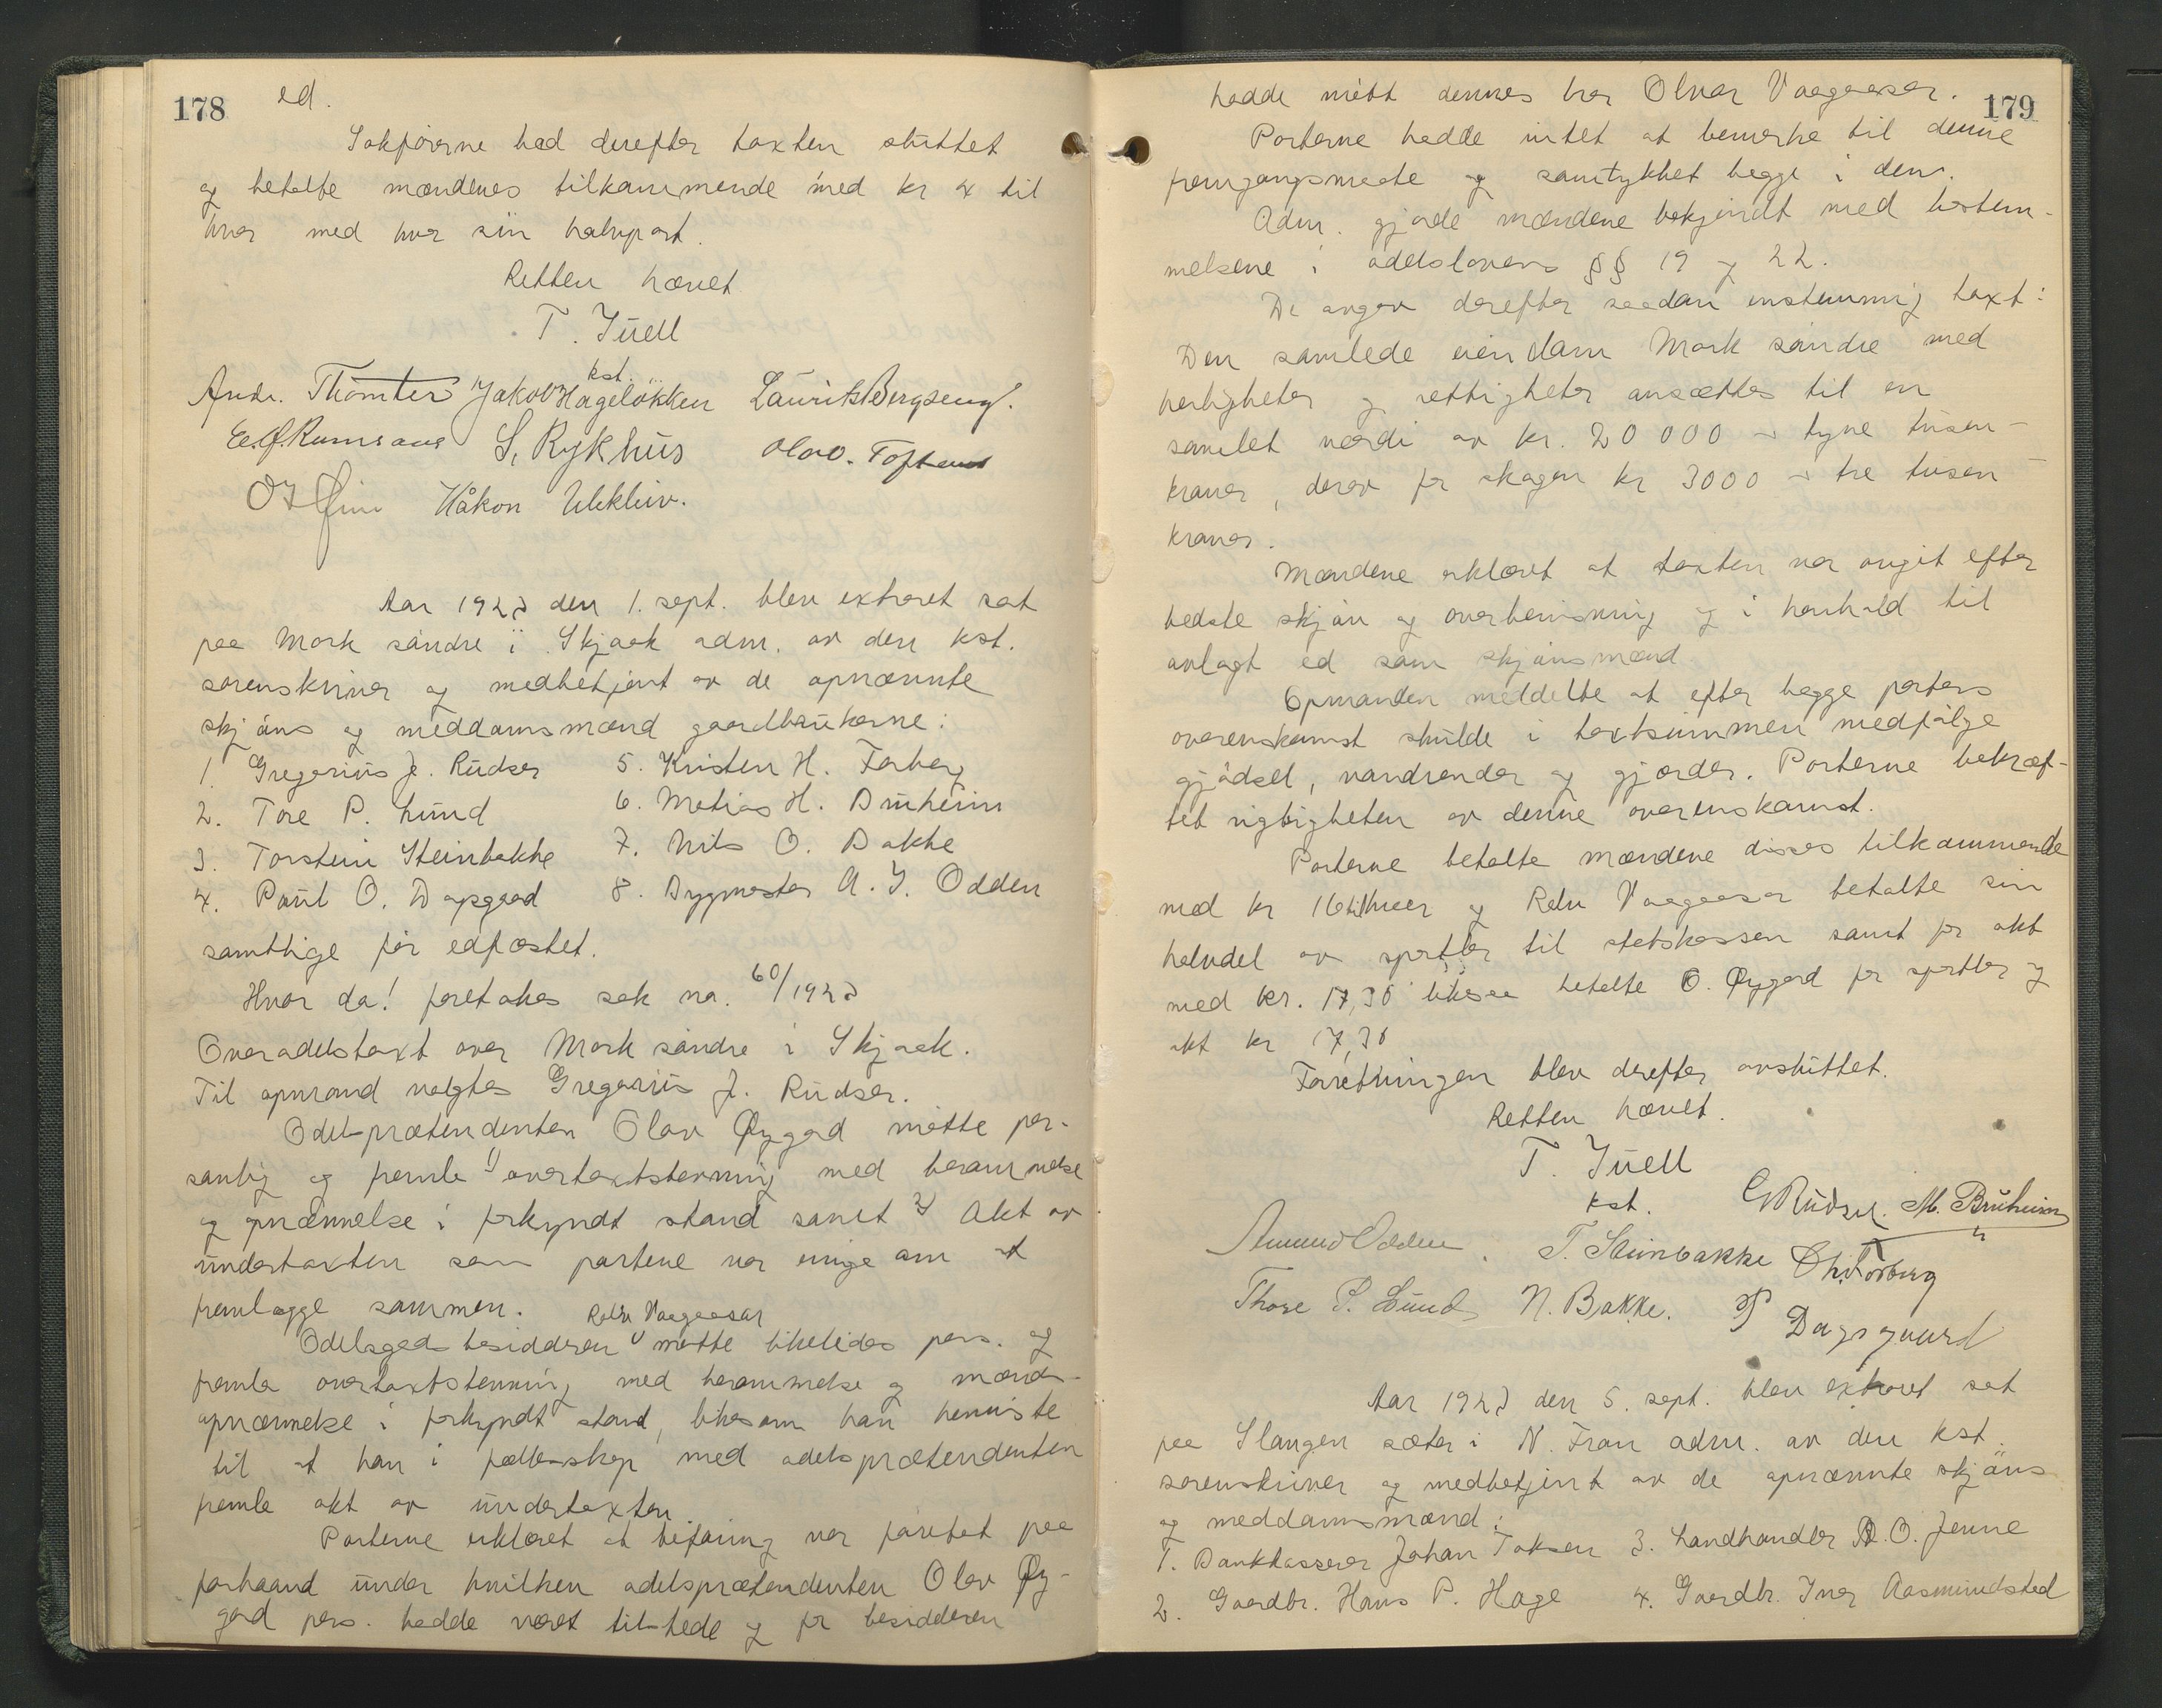 178
ed.
Sakförerne bad derefter taxten sluttet
og betalte mændenes tilkommende med kr 4 til
hver med hver sin halvpart.
Retten hævet
T. Juell
kst.
Andr. Thomter Jakob Hageløkken Laurits Bergseng.
S. Rykhus Olav. Toftemo
Håkon Ulekliv.
Aar 1923 den 1. sept. blev extraret sat
paa Mork söndre i Skjaak adm. av den kst.
sorenskriver og medbetjent av de opnævnte
skjöns og meddomsmænd gaardbrukerne:
1. Gregorius J. Rudser
2. Tore P. Lund
3. Torstein Steinbakke
4. Paul O. Dagsgard
5. Kristen H. Forberg
6. Matias H. Bruheim
7. Nils O. Bakke
8. Bygmester A. J. Odden
samtlige för edfæstet.
Hvor da! foretakes sak no. 60/1923
Overodelstaxt over Mork söndre i Skjaak.
Til opmand valgtes Gregorius J. Rudser.
Odelsprætendenten Olav Øygard mötte per-
sonlig og fremla 1) overtaxtstevning med berammelse
og opnævnelse i forkyndt stand samt 2) Akt av
undertaxten som partene var enige om at
fremlægge sammen.
Odelsgods besidderen Relv Vaageaasar mötte likeledes pers. og
fremla overtaxtstevning med berammelse og mænds-
opnævnelse i forkyndt stand, likesom han henviste
til at han i fællesskap med odelsprætendenten
fremla akt av undertaxten
Parterne erklæret at befaring var foretat paa
forhaand under hvilken odelsprætendenten Olav Øy-
gard pers. hadde været tilstede og for besidderen
179
hadde mött dennes bror Olvar Vaageasar.
Parterne hadde intet at bemerke til denne
fremgangsmaate og samtykket begge i den.
Adm. gjorde mændene bekjendt med bestem-
melsene i odelslovens §§ 19 og 22.
De avgav derefter saadan enstemmig taxt:
Den samlede eiendom Mork söndre med
herligheter og rettigheter ansættes til en
samlet værdi av kr. 20 000 - tyve tusen -
kroner, derav for skogen kr 3000 - tre tusen -
kroner.
Mændene erklæret at taxten var avgit efter
bedste skjön og overbevisning og i henhold til
avlagt ed som skjönsmænd.
Opmanden meddelte at efter begge parters
overenskomst skulde i taxtsummen medfölge
gjödsel, vandrender og gjærder. Parterne bekræf-
tet rigtigheten av denne overenskomst.
Parterne betalte mændene disses tilkommende
med kr 16 til hver og Relv Vaageasar betalte sin
halvdel av sportler til statskassen samt for akt
med kr. 17,30 likesaa betalte O. Øygard for sportler og
akt kr 17,30
Forretningen blev derefter avsluttet.
Retten hævet.
T. Juell
kst. G Rudser. M. Bruheim
Amund Odden. T. Steinbakke Chr. Forberg
Thore P. Lund N. Bakke. P Dagsgaard
Aar 1923 den 5. sept. blev extraret sat
paa Slangen sæter i N. Fron adm. av den kst
sorenskriver og medbetjent av de opnævnte skjöns
og meddomsmænd:
1. Bankkasserer Johan Toksen 3. Landhandler O. Jenne
2. Gaardbr. Hans P. Hage 4. Gaardbr. Iver Aasmundstad